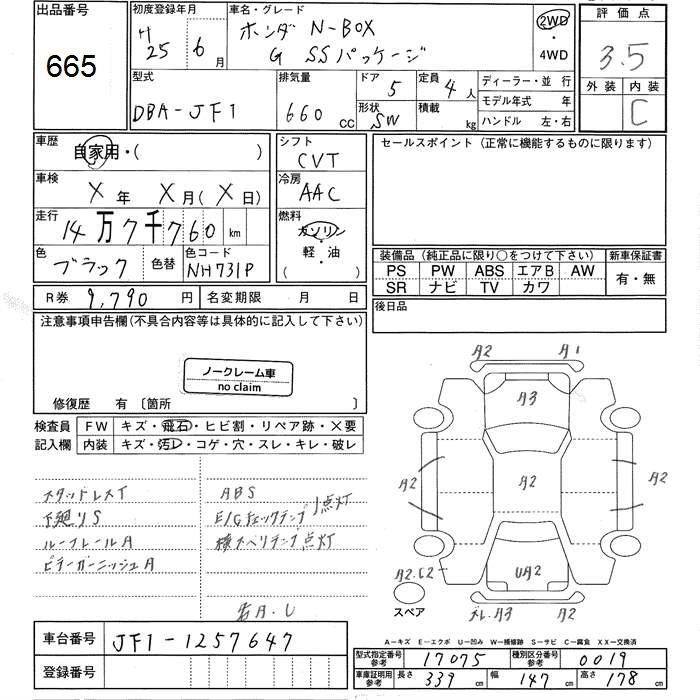 出品番号 665
初度登録年月 H25年 6月
車名・グレード ホンダ N-BOX
G SSパッケージ
2WD・4WD
評価点 3.5
外装 内装 C
型式 DBA-JF1
排気量 660 cc
ドア 5 定員 4人
形状 SW 積載 kg
ディーラー・並行
モデル年式 年
ハンドル 左・右
車歴 自家用・( )
シフト CVT
セールスポイント(正常に機能するものに限ります)
車検 X年 X月(X日)
冷房 AAC
走行 14万7千760 km
燃料 ガソリン 軽・油
色 ブラック 色替 色コード NH731P
装備品(純正品に限り○をつけて下さい) 新車保証書
PS PW ABS エアB AW 有・無
SR ナビ TV カワ
R券 9,790円 名変期限 月 日
後日品
注意事項申告欄(不具合内容等は具体的に記入して下さい)
ノークレーム車
no claim
修復歴 有 〔箇所 〕
検査員 FW キズ・飛石・ヒビ割・リペア跡・X要
記入欄 内装 キズ・汚レ・コゲ・穴・スレ・キレ・破レ
スタッドレスT ABS
下廻りS E/Gチェックランプ点灯
ルーフレールA 横スベリランプ点灯
ピラーガーニッシュA
若A.U
A2 A1
A3
A2 A2 A2
A2.C2 UA2
スペア A3 A2
A-キズ E-エクボ U-凹み W-補修跡 S-サビ C-腐食 XX-交換済
車台番号 JF1-1257647
登録番号
型式指定番号 参考 17075 種別区分番号 参考 0019
車庫証明用 参考 長さ 339 cm 幅 147 cm 高さ 178 cm